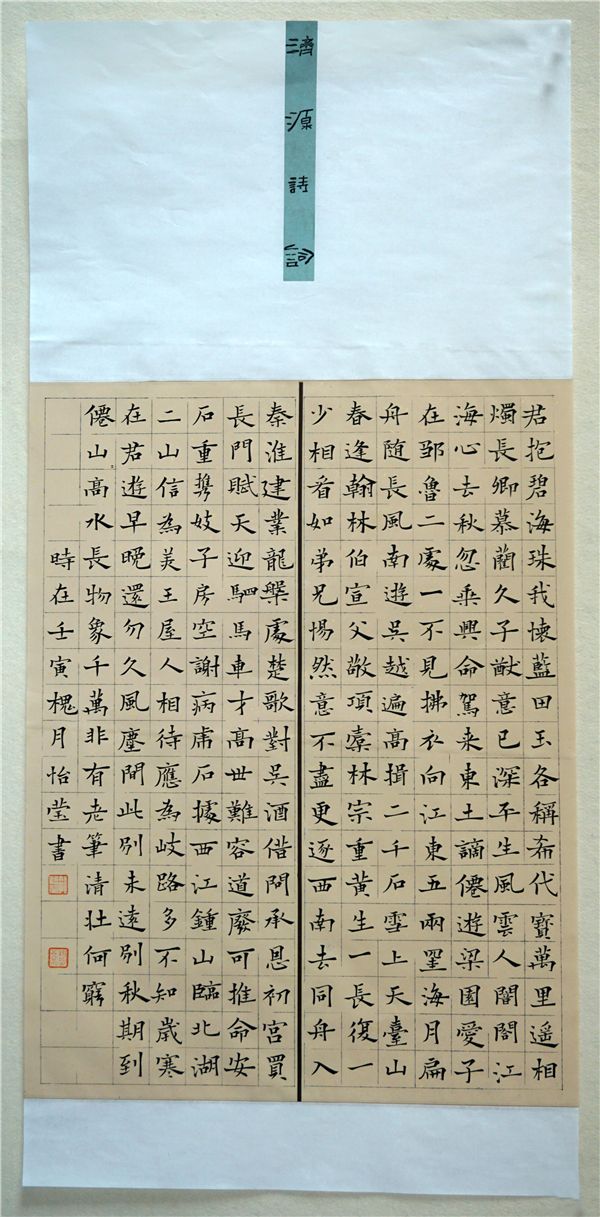 濟源詩
君抱碧海珠我懷藍田玉各稱希代寶萬里遥相
燭長卿慕藺久子猷意已深平生風雲人闇閤江
海心去秋忽乘興命駕来東土謫僊遊梁園愛子
在邹魯二處一不見拂衣向江東五兩罣海月扁
舟随長風南遊吳越遍高揖二千石雪上天臺山
春逢翰林伯宣父敬項橐林宗重黄生一長復一
少相看如弟兄惕然意不盡更逐西南去同舟入
秦淮建業龍槃處楚歌對吳酒借問承恩初宮買
長門賦天迎駟馬車才高世難容道廢可推命安
石重攜妓子房空謝病虎石據西江鍾山臨北湖
二山信為美王屋人相待應為岐路多不知歲寒
在君遊早晚還勿久風塵間此別未遠別秋期到
僊山高水長物象千萬非有老筆清壮何窮
時在壬寅槐月怡莹書